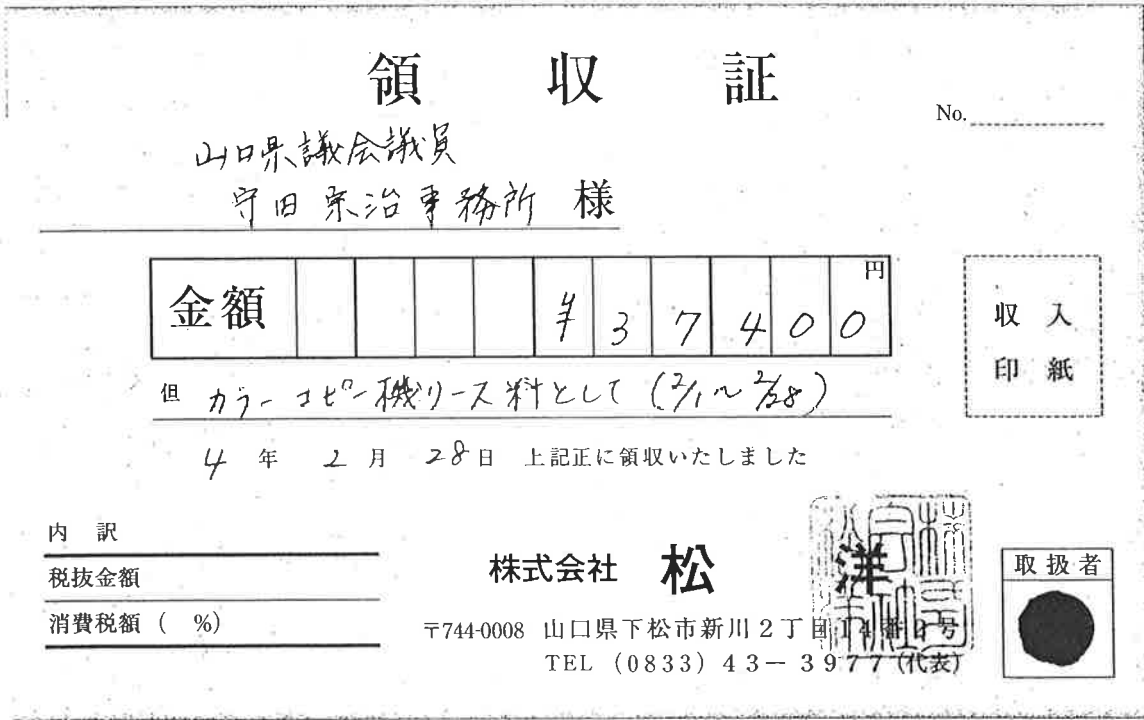 領収証
No.
山口県議会議員
守田宗治事務所 様
金額 ¥37400円
但 カラーコピー機リース料として (2/1〜2/28)
4年 2月 28日 上記正に領収いたしました
収入
印紙
内訳
税抜金額
消費税額 ( %)
株式会社 松洋
〒744-0008 山口県下松市新川2丁目14番2号
TEL (0833) 43-3977 (代表)
取扱者